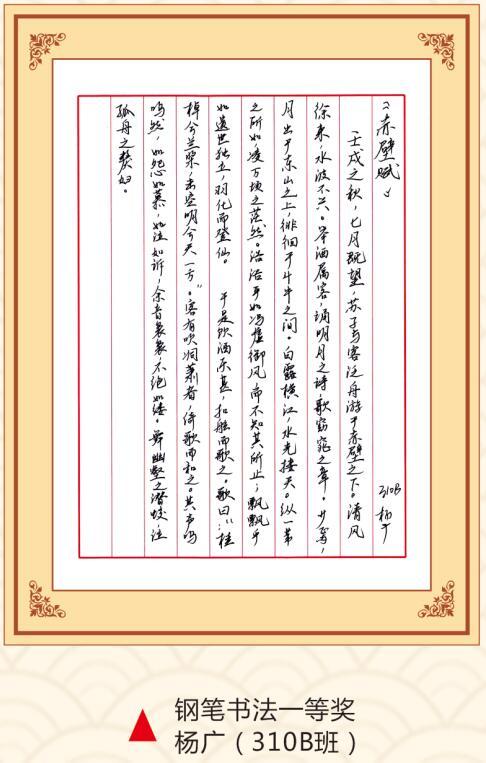 《赤壁赋》
310B 杨广
壬戌之秋，七月既望，苏子与客泛舟游于赤壁之下。清风
徐来，水波不兴。举酒属客，诵明月之诗，歌窈窕之章。少焉，
月出于东山之上，徘徊于斗牛之间。白露横江，水光接天。纵一苇
之所如，凌万顷之茫然。浩浩乎如冯虚御风，而不知其所止；飘飘乎
如遗世独立，羽化而登仙。 于是饮酒乐甚，扣舷而歌之。歌曰：“桂
棹兮兰桨，击空明兮天一方。”客有吹洞箫者，倚歌而和之。其声呜
呜然，如怨如慕，如泣如诉，余音袅袅，不绝如缕。舞幽壑之潜蛟，泣
孤舟之嫠妇。
钢笔书法一等奖
杨广（310B班）